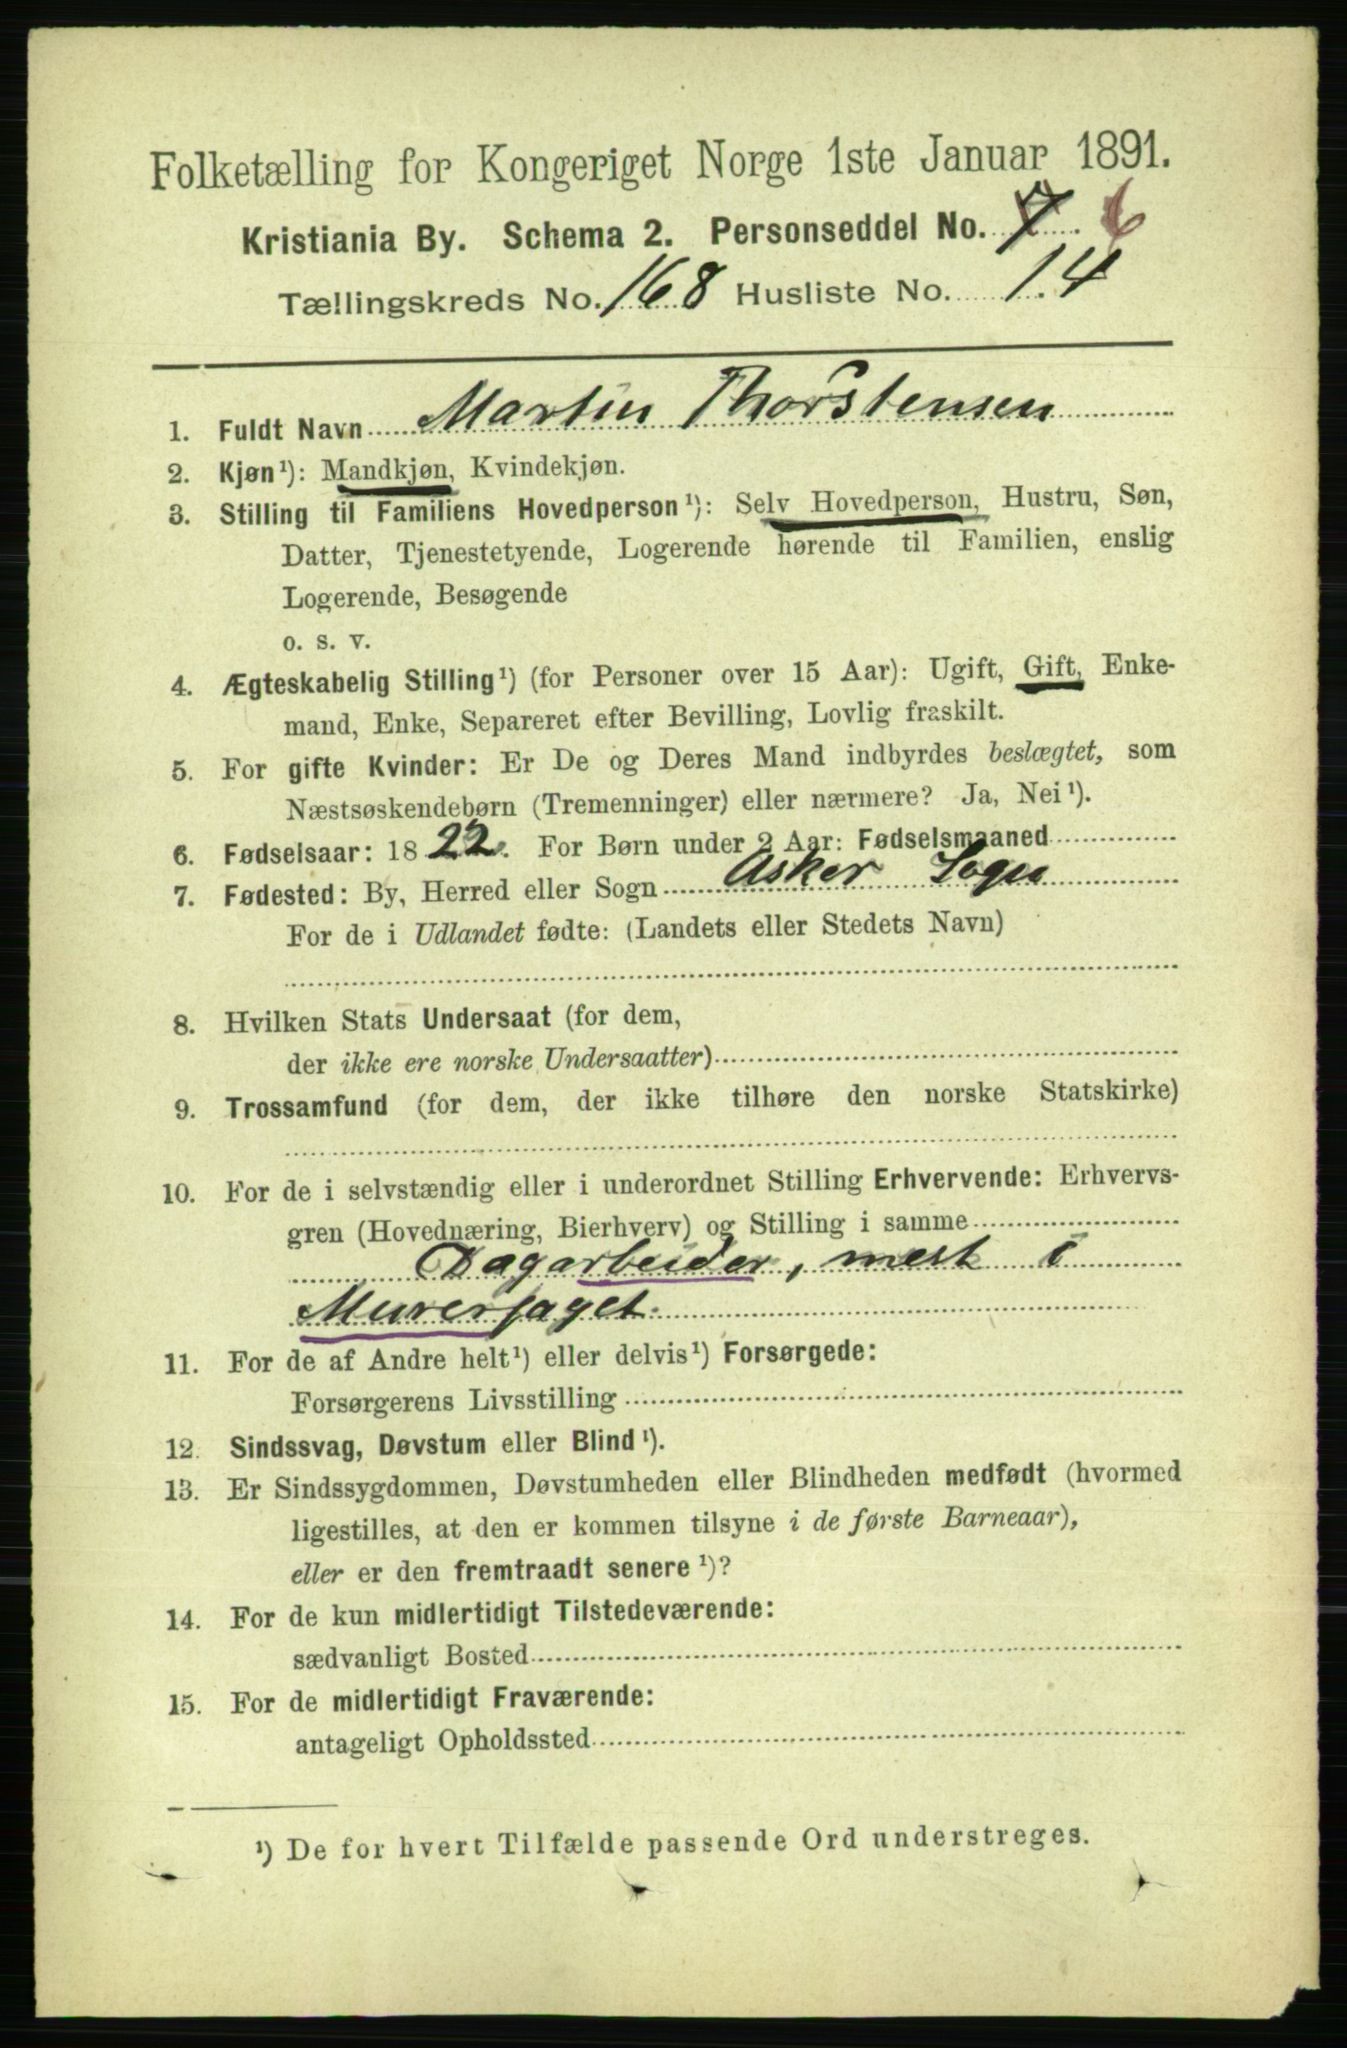 Folketælling for Kongeriget Norge 1ste Januar 1891.
Kristiania By. Schema 2. Personseddel No. 7. 6
Tællingskreds No. 168 Husliste No. 14
1. Fuldt Navn Martin Thorstensen
2. Kjøn¹): Mandkjøn, Kvindekjøn.
3. Stilling til Familiens Hovedperson¹): Selv Hovedperson, Hustru, Søn,
Datter, Tjenestetyende, Logerende hørende til Familien, enslig
Logerende, Besøgende
o. s. v.
4. Ægteskabelig Stilling¹) (for Personer over 15 Aar): Ugift, Gift, Enke-
mand, Enke, Separeret efter Bevilling, Lovlig fraskilt.
5. For gifte Kvinder: Er De og Deres Mand indbyrdes beslægtet, som
Næstsøskendebørn (Tremenninger) eller nærmere? Ja, Nei¹).
6. Fødselsaar: 1822. For Børn under 2 Aar: Fødselsmaaned
7. Fødested: By, Herred eller Sogn Asker Sogn
For de i Udlandet fødte: (Landets eller Stedets Navn)
8. Hvilken Stats Undersaat (for dem,
der ikke ere norske Undersaatter)
9. Trossamfund (for dem, der ikke tilhøre den norske Statskirke)
10. For de i selvstændig eller i underordnet Stilling Erhvervende: Erhvervs-
gren (Hovednæring, Bierhverv) og Stilling i samme
Dagarbeider, mest i
Murerfaget.
11. For de af Andre helt¹) eller delvis¹) Forsørgede:
Forsørgerens Livsstilling
12. Sindssvag, Døvstum eller Blind¹).
13. Er Sindssygdommen, Døvstumheden eller Blindheden medfødt (hvormed
ligestilles, at den er kommen tilsyne i de første Barneaar),
eller er den fremtraadt senere¹)?
14. For de kun midlertidigt Tilstedeværende:
sædvanligt Bosted
15. For de midlertidigt Fraværende:
antageligt Opholdssted
¹) De for hvert Tilfælde passende Ord understreges.